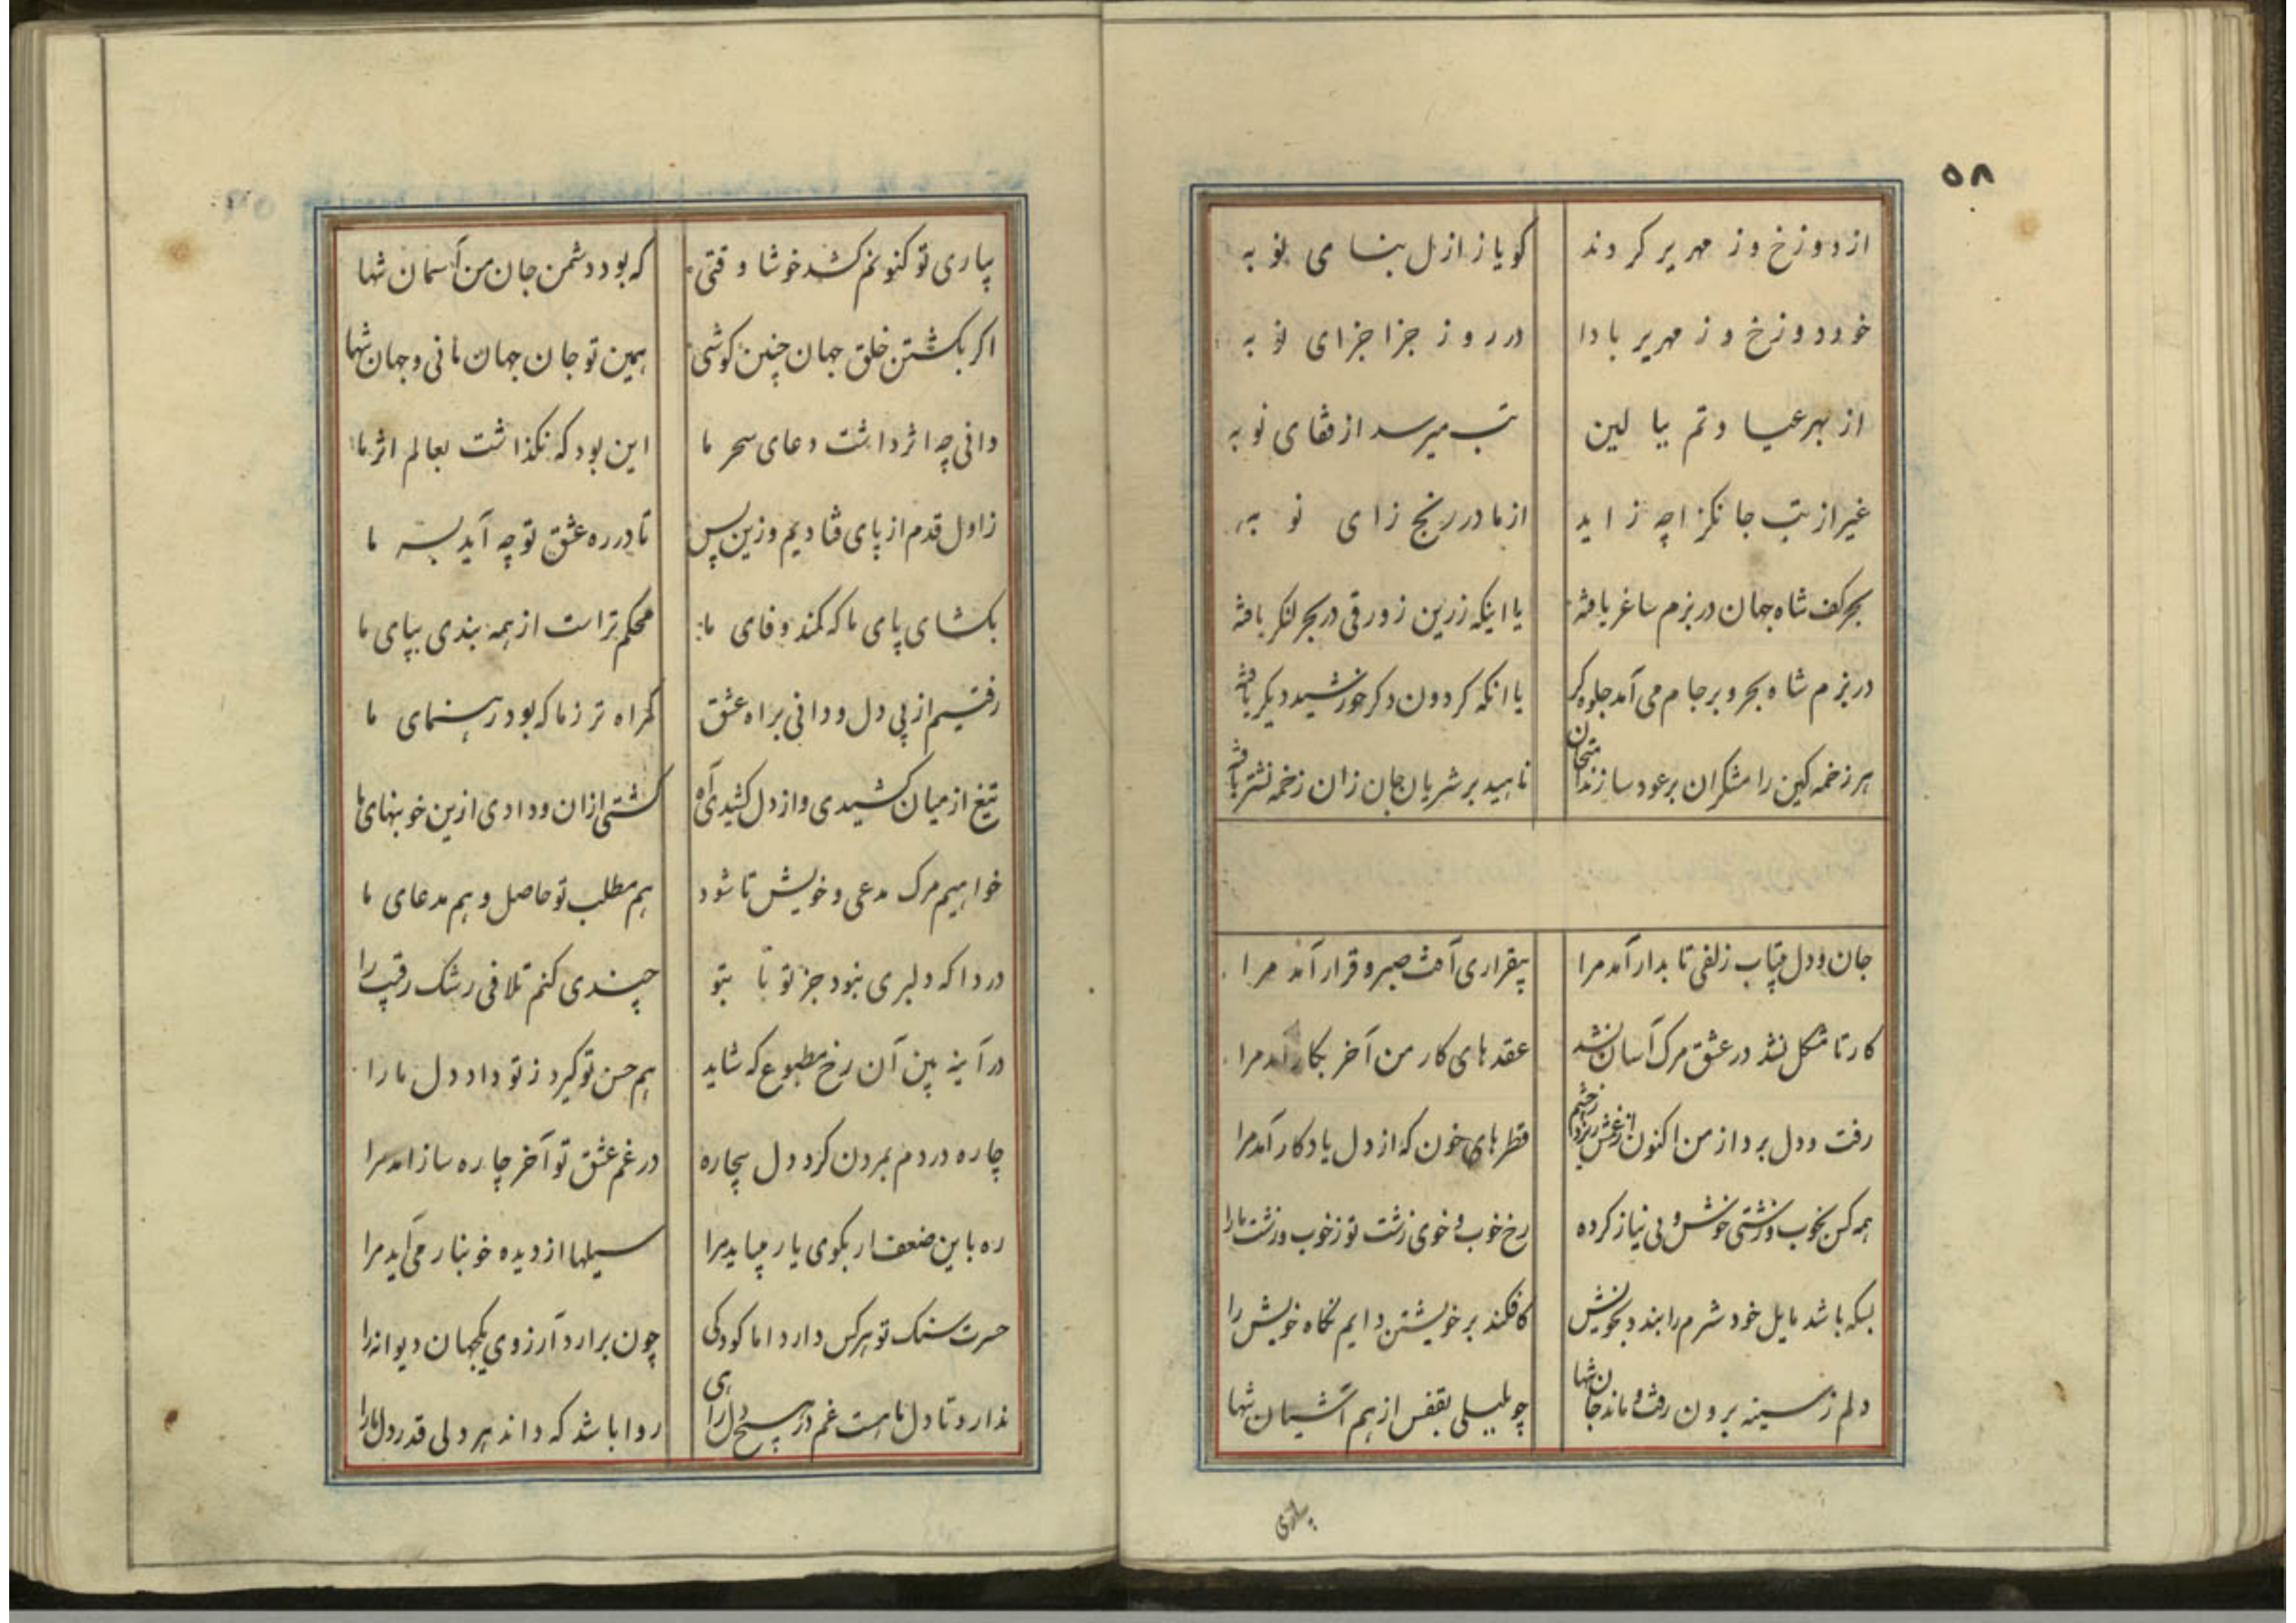 ۵۸
از دوزخ و ز مهریر کردند کویا ز ازل بنای نوبه
خود دوزخ و ز مهریر بادا در روز جزا جزای نوبه
از بهر عیادتم ببالین تب میرسد از قفای نوبه
غیر از تب جانکزا چه زاید از مادر رنج زای نوبه
بحر کف شاه جهان در بزم ساغر یافته یا اینکه زرین زورقی در بحر لنکر یافته
در بزم شاه بحر و بر جام می آمد جلوه کر یا انکه کردون دکر خورشید دیکر یافته
هر زخمه کین رامشکران بر عود سازند امتحان ناهید بر شریان جان زان زخمه نشتر یافته
جان و دل بیتاب زلفی تابدار آمد مرا بیقراری آفت صبر و قرار آمد مرا
کار تا مشکل نشد در عشق مرک آسان نشد عقدهای کار من آخر بکار آمد مرا
رفت و دل برد از من اکنون از غمش ریزد ز چشم قطرهای خون که از دل یادکار آمد مرا
همه کس بخوب و زشتی خوش و بی نیاز کرده رخ خوب و خوی زشت تو ز خوب و زشت ما را
بسکه باشد مایل خود شرم را بندد بخویش کافکند بر خویشتن دایم نکاه خویش را
دلم ز سینه برون رفت و ماند جان تنها چو بلبلی بقفس از هم آشیان تنها
بیاری
بیاری تو کنونم کشد خوشا وقتی که بود دشمن جان من آسمان تنها
اکر بکشتن خلق جهان چنین کوشی همین تو جان جهان مانی و جهان تنها
دانی چه اثر داشت دعای سحر ما این بود که نکذاشت بعالم اثر ما
ز اول قدم از پای فتادیم وزین پس تا در ره عشق تو چه آید بسر ما
بکشای پای ما که کمند وفای ما محکم تر است از همه بندی بپای ما
رفتیم از پی دل و دانی براه عشق کمراه تر ز ما که بود رهنمای ما
تیغ از میان کشیدی و از دل کشیدی آه کشتی ازان و دادی ازین خونبهای ما
خواهیم مرک مدعی و خویش تا شود هم مطلب تو حاصل و هم مدعای ما
دردا که دلبری نبود جز تو تا بتو چندی کنم تلافی رشک رقیب را
در آینه بین آن رخ مطبوع که شاید هم حسن تو کیرد ز تو داد دل ما را
چاره دردم بمردن کرد دل بیچاره در غم عشق تو آخر چاره ساز آمد مرا
ره باین ضعف ار بکوی یار میباید مرا سیلها از دیده خونبار می آید مرا
حسرت سنک تو هر کس دارد اما کودکی چون برارد آرزوی یکجهان دیوانه را
ندارد تا دل ما هست غم در هیچ دل راهی روا باشد که داند هر دلی قدر دل ما را